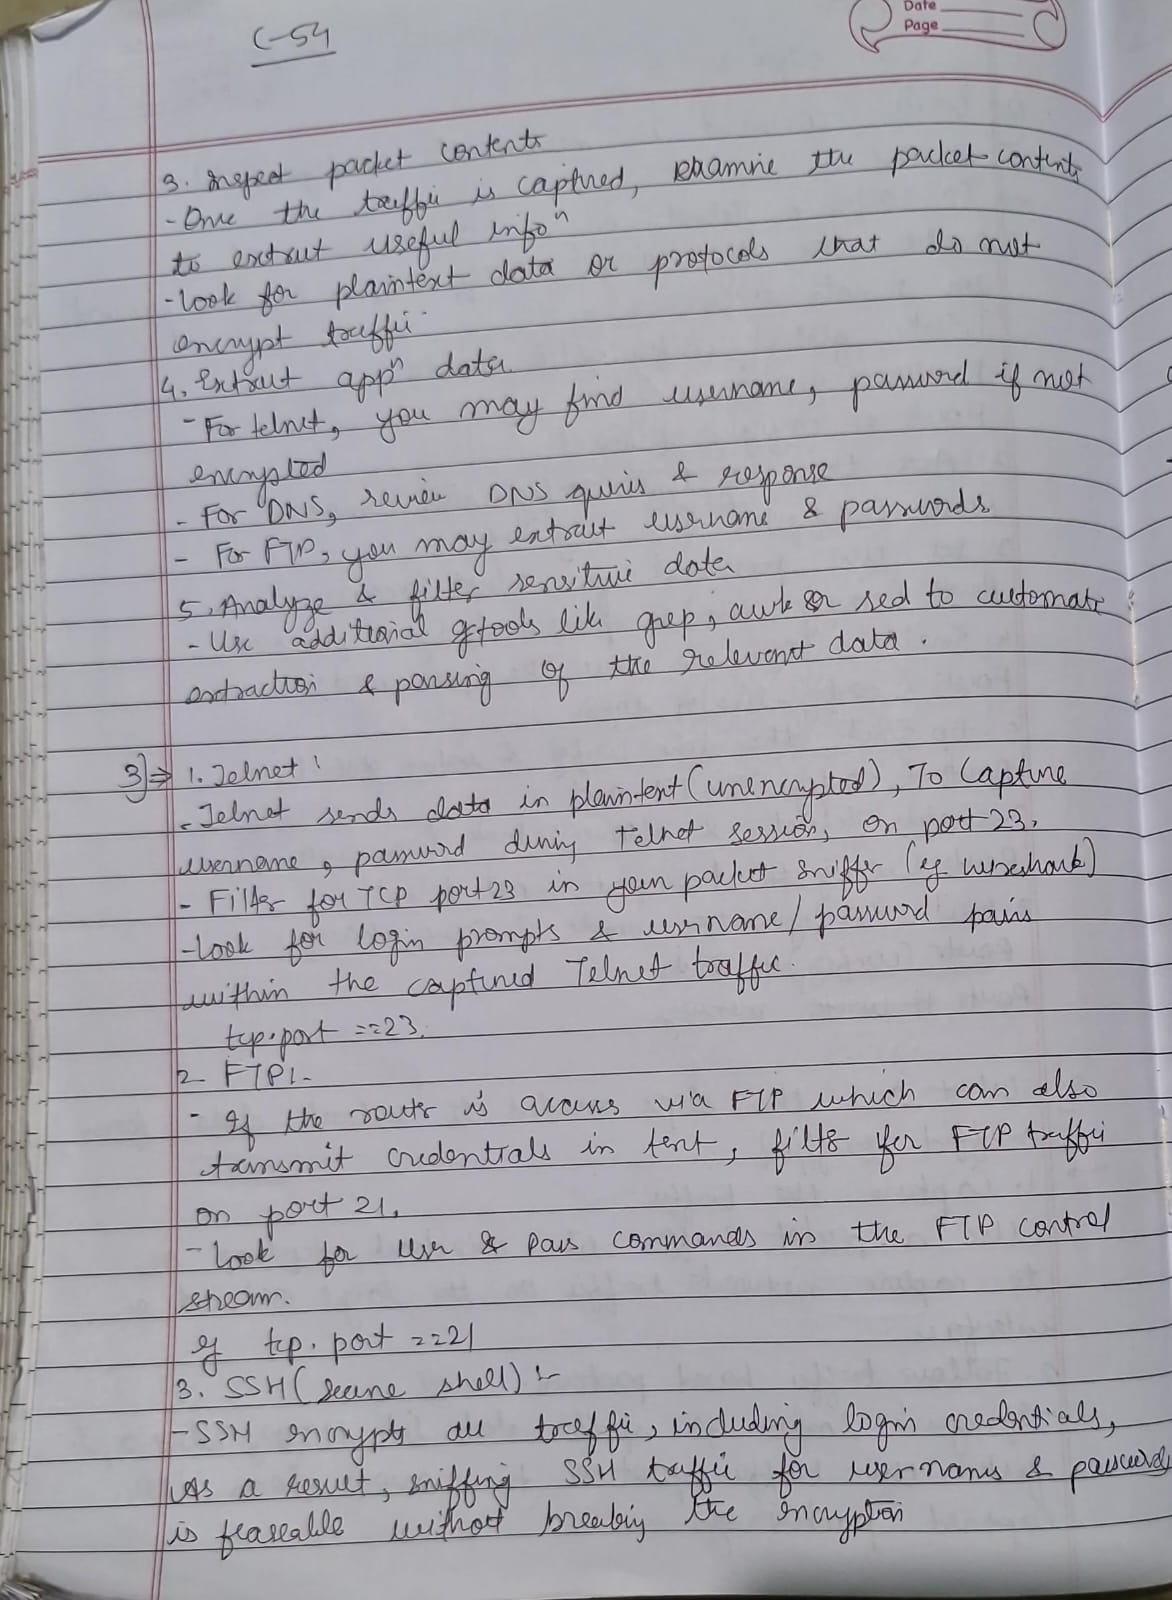 C-54
Date
Page
3. Inspect packet contents
- Once the traffic is captured, examine the packet contents
to extract useful infoⁿ
- look for plaintext data or protocols that do not
encrypt traffic.
4. Extract appⁿ data
- For telnet, you may find username, password if not
encrypted
- For DNS, review DNS queries & response
- For FTP, you may extract username & passwords
5. Analyze & filter sensitive data
- Use additional tools like grep, awk or sed to automate
extraction & parsing of the relevant data.
3] ⇒ 1. Telnet :
- Telnet sends data in plaintext (unencrypted), To Capture
username, password during Telnet session, on port 23.
- Filter for TCP port 23 in your packet sniffer (eg wireshark)
- look for login prompts & username/password pairs
within the captured Telnet traffic.
tcp.port ==23.
2. FTP :-
- If the router is access via FTP which can also
transmit credentials in text, filter for FTP traffic
on port 21.
- look for user & pass commands in the FTP control
stream.
eg tcp.port ==21
3. SSH (secure shell) :-
- SSH encrypts all traffic, including login credentials,
As a result, sniffing SSH traffic for usernames & passwords
is feaseable without breaking the encryption